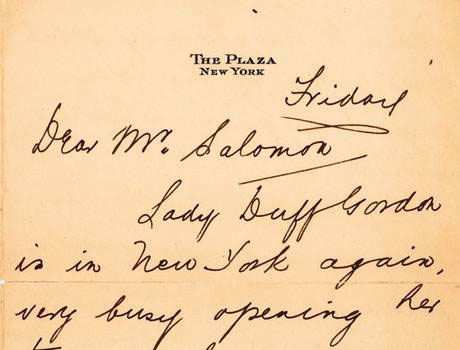 THE PLAZA
NEW YORK
Friday
Dear Mr. Salomon
Lady Duff Gordon
is in New York again,
very busy opening her